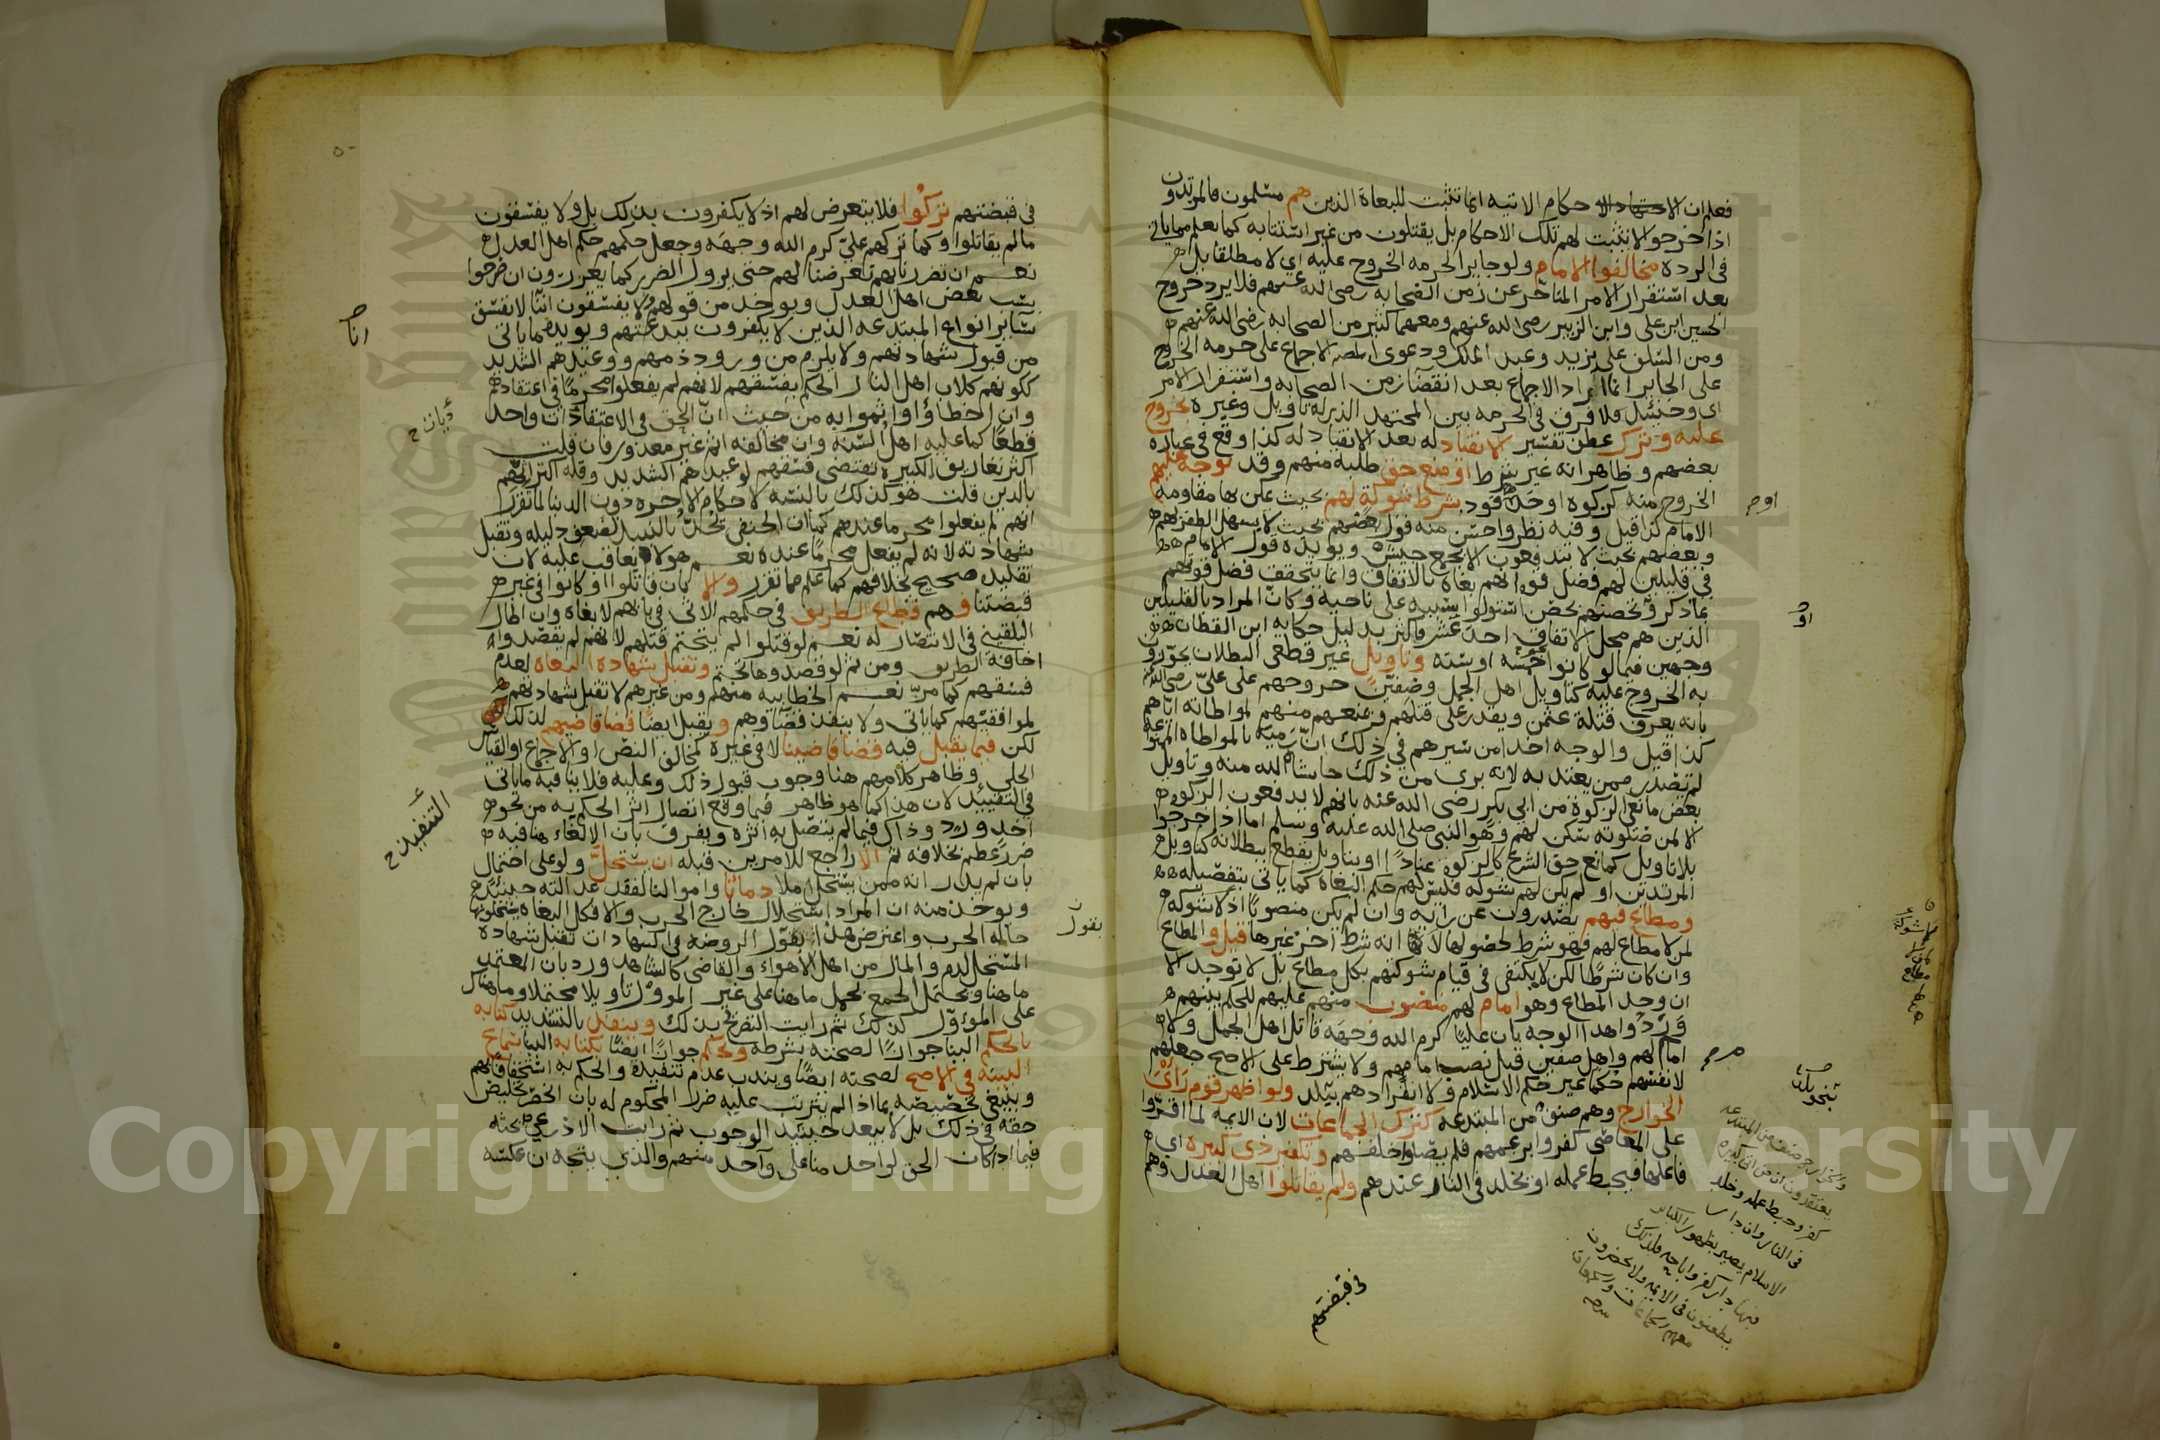 فعلم ان الاحكام الاتيه انما تثبت للبغاة الذين هم مسلمون فالمرتدون
اذا خرجوا لا تثبت لهم تلك الاحكام بل يقتلون من غير استتابه كما يعلم مما ياتي
في الردة مخالفوا الامام ولو جايرا لحرمه الخروج عليه اي لا مطلقا بل
بعد استقرار الامر المتاخر عن زمن الصحابه رضي الله عنهم فلا يرد خروج
الحسين ابن علي وابن الزبير رضي الله عنهم ومعهما كثير من الصحابه رضي الله عنهم
ومن السلف على يزيد وعبد الملك ودعوى الاجماع على حرمه الخروج
على الجاير انما اراد الاجماع بعد انقضا زمن الصحابه واستقرار الامر
اي وحينئذ فلا فرق في الحرمه بين المجتهد الذي له تاويل وغيره بخروج
عليه وترك عطف تفسير الانقياد له بعد الانقياد له كذا وقع في عبارة
بعضهم وظاهر انه غير شرط او منع حق طلبه منهم وقد توجه عليهم
الخروج منه كزكوه او حد او قود بشرط شوكة لهم بحيث يمكن بها مقاومة
الامام كذا قيل وفيه نظر واحسن منه قول بعضهم بحيث لا يسهل الظفر بهم
وبعضهم بحيث لا يندفعون الا بجمع جيش ويويده قول الامام
في قليلين لهم فضل قوه انهم بغاة بالاتفاق وانما يتحقق فضل قوتهم
بما ذكر وتحصنهم بحصن استولوا بسببه على ناحيه وكان المراد بالقليلين
الذين هم محل الاتفاق احد عشر فاكثر بدليل حكايه ابن القطان
وجهين فيما لو كانوا خمسه او سته وتاويل غير قطعي البطلان يجوزون
به الخروج عليه كتاويل اهل الجمل وصفين خروجهم على علي رضي الله عنه
بانه يعرف قتلة عثمن ويقدر على قتلهم ومنعهم منهم لمواطاته اياهم
كذا قيل والوجه اخذا من سيرهم في ذلك ان رميه بالمواطاة
لم تصدر ممن يعتد به لانه بري من ذلك حاشاه الله منه وتاويل
بعض مانعي الزكوة من ابي بكر رضي الله عنه بانهم لا يدفعون الزكوة
الا لمن صلوته سكن لهم وهو النبي صلى الله عليه وسلم اما اذا خرجوا
بلا تاويل كمانع حق الشرع كالزكوة عنادا او بتاويل يقطع ببطلانه كتاويل
المرتدين او لم يكن لهم شوكه فليس لهم حكم البغاة كما ياتي بتفصيله
ومطاع فيهم يصدرون عن رايه وان لم يكن منصوبا اذ لا شوكة
لمن لا مطاع لهم فهو شرط لحصولها لا انه شرط اخر غيرها قيل والمطاع
وان كان شرطا لكن لا يكتفى في قيام شوكتهم بكل مطاع بل لا توجد الا
ان وجد المطاع وهو امام لهم منصوب منهم عليهم للحكم بينهم
وردوا هذا الوجه بان عليا كرم الله وجهه قاتل اهل الجمل ولا
امام لهم واهل صفين قبل نصب امامهم ولا يشترط على الاصح جعلهم
لانفسهم حكما غير حكم الاسلام ولا انفرادهم ببلد ولو اظهر قوم راي
الخوارج وهم صنف من المبتدعه كترك الجماعات لان الايمه لما اقروا
على المعاصي كفروا بزعمهم فلم يصلوا خلفهم وتكفير ذي كبيره اي
فاعلها فيحبط عمله او يخلد في النار عندهم ولم يقاتلوا اهل العدل وهم
في قبضتهم
والخوارج صنف من المبتدعه
يعتقدون ان من اتى كبيرة
كفر وحبط عمله وخلد
في النار وان دار
الاسلام يصير بظهور الكبائر
فيها دار كفر واباحه فلذلك
يطعنون في الايمه ولا يحضرون
معهم الجماعات
في قبضتهم تركوا فلا يتعرض لهم اذ لا يكفرون بذلك بل ولا يفسقون
ما لم يقاتلوا وكما تركهم علي كرم الله وجهه وجعل حكمهم حكم اهل العدل
نعم ان تضررنا بهم تعرضنا لهم حتى يزول الضرر كما يعزرون ان صرحوا
بسب بعض اهل العدل ويوخذ من قولهم ولا يفسقون انا لا نفسق
سائر انواع المبتدعه الذين لا يكفرون ببدعتهم ويويده ما ياتي
من قبول شهادتهم ولا يلزم من ورود ذمهم ووعيدهم الشديد
ككونهم كلاب اهل النار الحكم بفسقهم لانهم لم يفعلوا محرما في اعتقادهم
وان اخطاوا واثموا به من حيث ان الحق في الاعتقادات واحد
قطعا كما عليه اهل السنه وان مخالفه اثم غير معذور فان قلت
اكثر تعاريف الكبيره تقتضي فسقهم لوعيدهم الشديد وقلة اكتراثهم
بالدين قلت هو كذلك بالنسبه لاحكام الاخره دون الدنيا لما تقرر
انهم لم يفعلوا محرما عندهم كما ان الحنفي يحد بالنبيذ لضعف دليله وتقبل
شهادته لانه لم يفعل محرما عنده نعم هو لا يعاقب عليه لان
تقليده صحيح بخلافهم كما علم مما تقرر والا كان قاتلوا او كانوا في غير
قبضتنا فهم قطاع الطريق في حكمهم الاتي في بابهم لا بغاه وان اطال
البلقيني في الانتصار له نعم لو قتلوا لم يتحتم قتلهم لانهم لم يقصدوا
اخافة الطريق ومن ثم لو قصدوها تحتم وتقبل شهادة البغاه لعدم
فسقهم كما مر نعم الخطابيه منهم ومن غيرهم لا تقبل شهادتهم
لموافقيهم كما ياتي ولا ينفذ قضاوهم ويقبل ايضا قضا قاضيهم لذلك
لكن فيما يقبل فيه قضا قاضينا لا في غيره كمخالف النص او الاجماع او القياس
الجلي وظاهر كلامهم هنا وجوب قبول ذلك وعليه فلا ينافيه ما ياتي
في التقييد لان هذا كما هو ظاهر فيما وقع اتصال اثر الحكم به من نحو
اخذ ورد وذاك فيما لم يتصل به اثره ويفرق بان الالغاء هنا فيه
ضرر عظيم بخلافه ثم الا راجع للامرين قبله ان يستحل ولو على احتمال
بان لم يدر انه ممن يستحل ام لا دمائنا واموالنا لفقد عدالته حينئذ
ويوخذ منه ان المراد استحلال خارج الحرب والا فكل البغاه يستحلونها
حالة الحرب واعترض هذا بقول الروضه في الشهادات تقبل شهادة
المستحل الدم والمال من اهل الاهواء والقاضي كالشاهد ورد بان المعتمد
ما هنا ويحتمل الجمع بحمل ما هنا على غير المؤول تاويلا محتملا وما هناك
على المؤول كذلك ثم رايت التصريح بذلك وينفذ بالتشديد كتابه
بالحكم الينا جوازا لصحته بشرطه ويحكم جوازا ايضا بكتابه الينا بسماع
البينه في الاصح لصحته ايضا ويندب عدم تنفيذه والحكم به استخفافا بهم
وينبغي تخصيصه بما اذا لم يترتب عليه ضرر المحكوم له بان انحصر تخليص
حقه في ذلك بل لا يبعد حينئذ الوجوب ثم رايت الاذرعي بحثه
فيما اذا كان الحق لواحد منا على واحد منهم والذي يتجه ان عكسه
التنفيذ
بقول